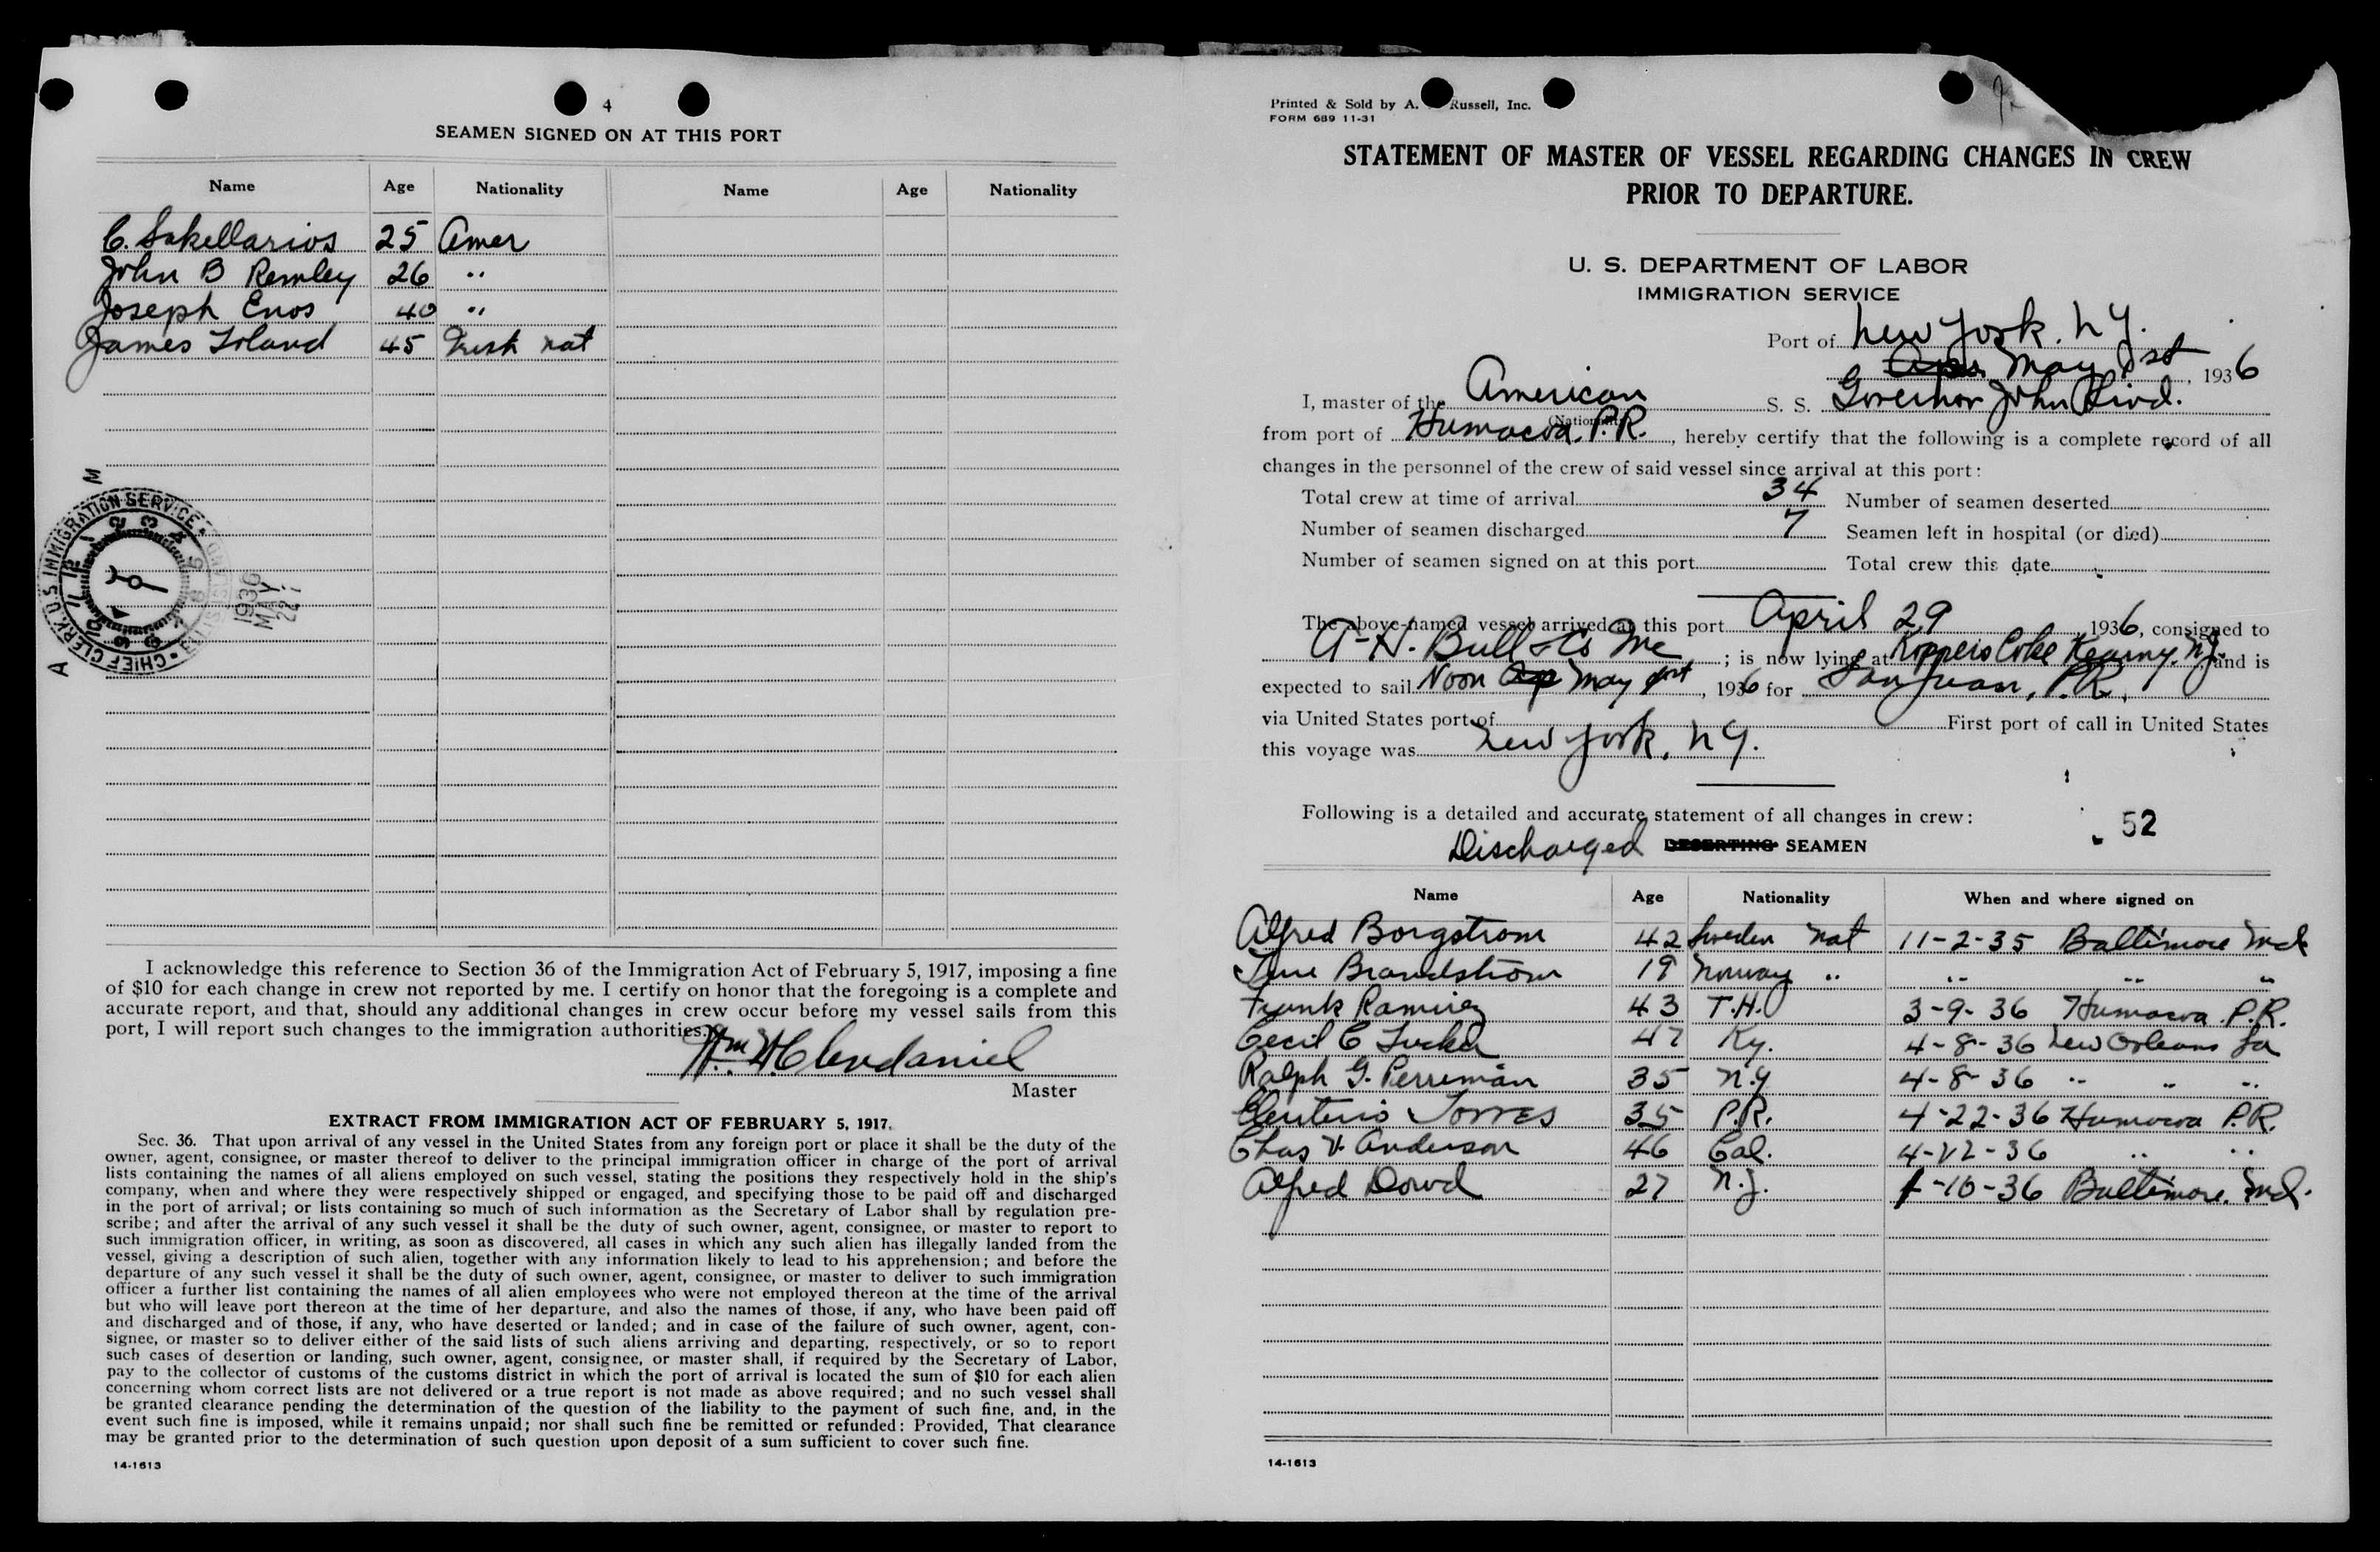 4
SEAMEN SIGNED ON AT THIS PORT
Name Age Nationality Name Age Nationality
C. Sakellarios 25 Amer
John B Remley 26 "
Joseph Enos 40 "
James Irland 45 Irish nat
CHIEF CLERK U.S. IMMIGRATION SERVICE
1936
MAY
I acknowledge this reference to Section 36 of the Immigration Act of February 5, 1917, imposing a fine
of $10 for each change in crew not reported by me. I certify on honor that the foregoing is a complete and
accurate report, and that, should any additional changes in crew occur before my vessel sails from this
port, I will report such changes to the immigration authorities.
Wm. H. Clendaniel
Master
EXTRACT FROM IMMIGRATION ACT OF FEBRUARY 5, 1917.
Sec. 36. That upon arrival of any vessel in the United States from any foreign port or place it shall be the duty of the
owner, agent, consignee, or master thereof to deliver to the principal immigration officer in charge of the port of arrival
lists containing the names of all aliens employed on such vessel, stating the positions they respectively hold in the ship's
company, when and where they were respectively shipped or engaged, and specifying those to be paid off and discharged
in the port of arrival; or lists containing so much of such information as the Secretary of Labor shall by regulation pre-
scribe; and after the arrival of any such vessel it shall be the duty of such owner, agent, consignee, or master to report to
such immigration officer, in writing, as soon as discovered, all cases in which any such alien has illegally landed from the
vessel, giving a description of such alien, together with any information likely to lead to his apprehension; and before the
departure of any such vessel it shall be the duty of such owner, agent, consignee, or master to deliver to such immigration
officer a further list containing the names of all alien employees who were not employed thereon at the time of the arrival
but who will leave port thereon at the time of her departure, and also the names of those, if any, who have been paid off
and discharged and of those, if any, who have deserted or landed; and in case of the failure of such owner, agent, con-
signee, or master so to deliver either of the said lists of such aliens arriving and departing, respectively, or so to report
such cases of desertion or landing, such owner, agent, consignee, or master shall, if required by the Secretary of Labor,
pay to the collector of customs of the customs district in which the port of arrival is located the sum of $10 for each alien
concerning whom correct lists are not delivered or a true report is not made as above required; and no such vessel shall
be granted clearance pending the determination of the question of the liability to the payment of such fine, and, in the
event such fine is imposed, while it remains unpaid; nor shall such fine be remitted or refunded: Provided, That clearance
may be granted prior to the determination of such question upon deposit of a sum sufficient to cover such fine.
14-1613
Printed & Sold by A. Russell, Inc.
FORM 689 11-31
STATEMENT OF MASTER OF VESSEL REGARDING CHANGES IN CREW
PRIOR TO DEPARTURE.
U. S. DEPARTMENT OF LABOR
IMMIGRATION SERVICE
Port of New York, N.Y.
May 1st, 1936
I, master of the American S. S. Governor John Lind.
(Nationality)
from port of Humacoa. P.R., hereby certify that the following is a complete record of all
changes in the personnel of the crew of said vessel since arrival at this port:
Total crew at time of arrival 34 Number of seamen deserted
Number of seamen discharged 7 Seamen left in hospital (or died)
Number of seamen signed on at this port Total crew this date
The above-named vessel arrived at this port April 29, 1936, consigned to
A-H. Bull & Co Inc; is now lying at Koppers Coke Kearny. N.J. and is
expected to sail Noon May first, 1936 for San Juan, P.R.
via United States port of First port of call in United States
this voyage was New York, N.Y.
Following is a detailed and accurate statement of all changes in crew:
52
Discharged DESERTING SEAMEN
Name Age Nationality When and where signed on
Alfred Borgstrom 42 Sweden nat 11-2-35 Baltimore Md
Brandstrom 19 Norway " " " "
Frank Ramirez 43 T.H. 3-9-36 Humacoa P.R.
Cecil C Tucker 47 Ky. 4-8-36 New Orleans La
Ralph G. Perreman 35 N.Y 4-8-36 " " "
Eleuterio Torres 35 P.R. 4-22-36 Humacoa P.R.
Chas V. Anderson 46 Cal. 4-22-36 " "
Alfred Dowd 27 N.J. 1-10-36 Baltimore. Md.
14-1613